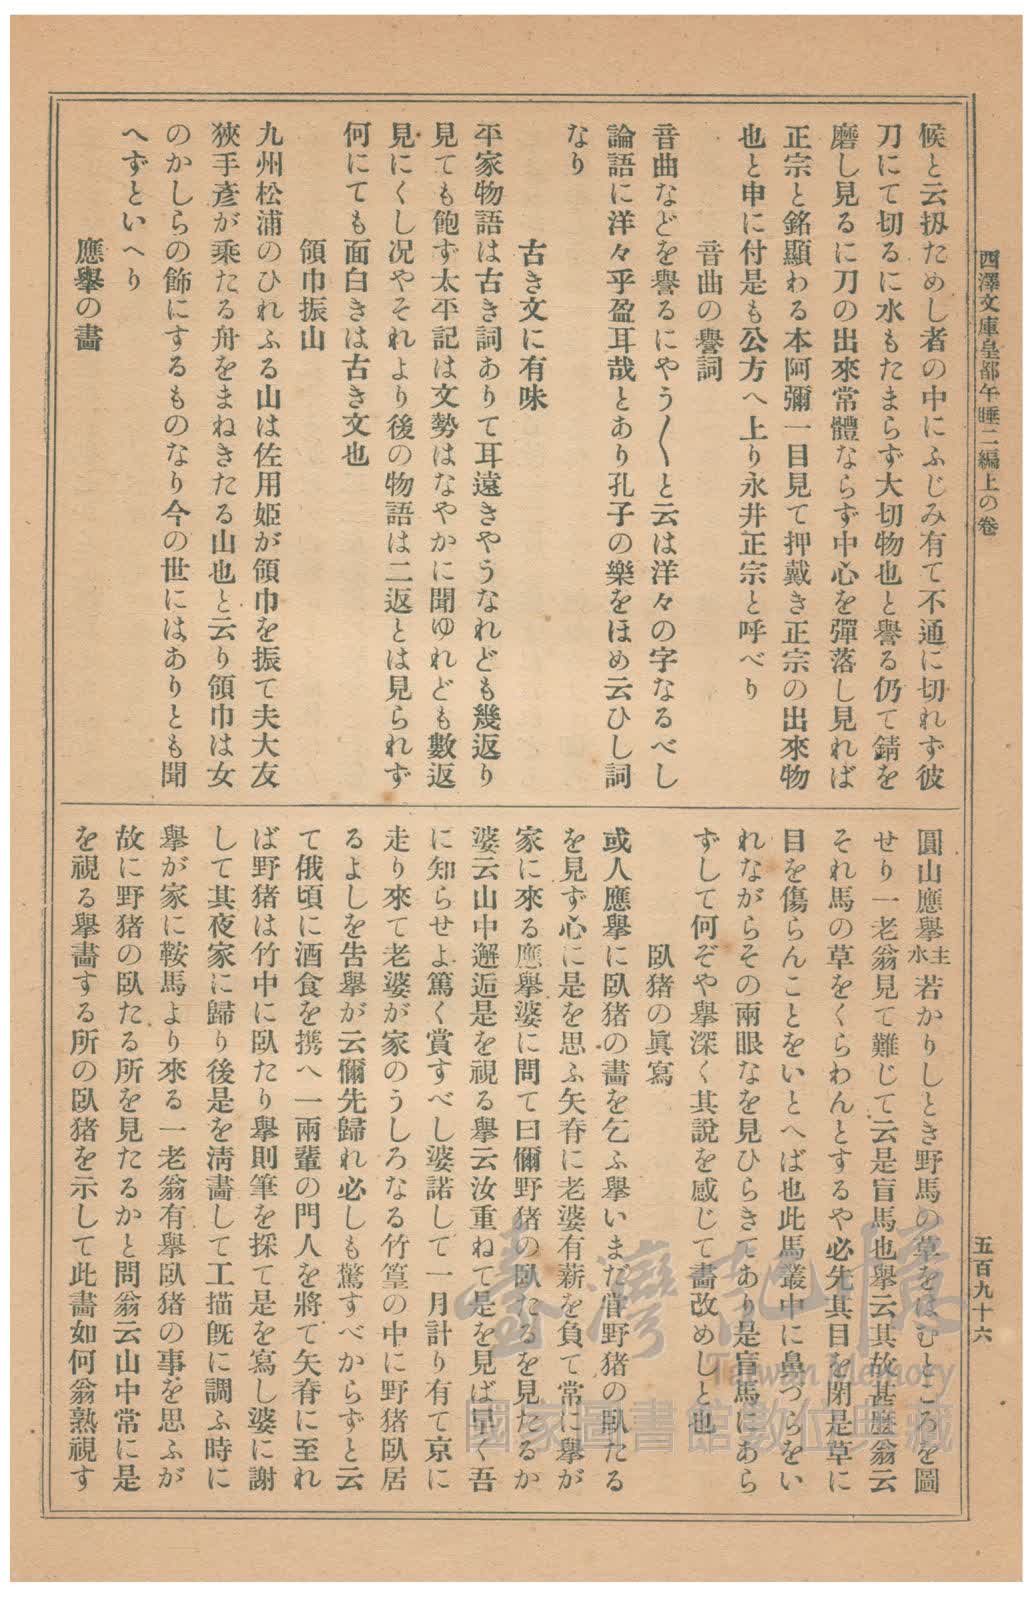 西澤文庫皇都午睡二編上の卷
五百九十六
候と云扨ためし者の中にふじみ有て不通に切れず彼
刀にて切るに水もたまらず大切物也と譽る仍て錆を
磨し見るに刀の出來常體ならず中心を彈落し見れば
正宗と銘顯わる本阿彌一目見て押戴き正宗の出來物
也と申に付是も公方へ上り永井正宗と呼べり
音曲の譽詞
音曲などを譽るにやう〳〵と云は洋々の字なるべし
論語に洋々乎盈耳哉とあり孔子の樂をほめ云ひし詞
なり
古き文に有味
平家物語は古き詞ありて耳遠きやうなれども幾返り
見ても飽ず太平記は文勢はなやかに聞ゆれども數返
見にくし况やそれより後の物語は二返とは見られず
何にても面白きは古き文也
領巾振山
九州松浦のひれふる山は佐用姫が領巾を振て夫大友
狹手彥が乘たる舟をまねきたる山也と云り領巾は女
のかしらの飾にするものなり今の世にはありとも聞
へずといへり
應擧の畵
圓山應擧主水若かりしとき野馬の草をはむところを圖
せり一老翁見て難じて云是盲馬也擧云其故甚麽翁云
それ馬の草をくらわんとするや必先其目を閉是草に
目を傷らんことをいとへば也此馬叢中に鼻づらをい
れながらその兩眼なを見ひらきてあり是盲馬にあら
ずして何ぞや擧深く其說を感じて畵改めしと也
臥猪の眞寫
或人應擧に臥猪の畵を乞ふ擧いまだ甞野猪の臥たる
を見ず心に是を思ふ矢脊に老婆有薪を負て常に擧が
家に來る應擧婆に問て曰儞野猪の臥たるを見たるか
婆云山中邂逅是を視る擧云汝重ねて是を見ば早く吾
に知らせよ篤く賞すべし婆諾して一月計り有て京に
走り來て老婆が家のうしろなる竹篁の中に野猪臥居
るよしを告擧が云儞先歸れ必しも驚すべからずと云
て俄頃に酒食を携へ一兩輩の門人を將て矢脊に至れ
ば野猪は竹中に臥たり擧則筆を採て是を寫し婆に謝
して其夜家に歸り後是を淸畵して工描旣に調ふ時に
擧が家に鞍馬より來る一老翁有擧臥猪の事を思ふが
故に野猪の臥たる所を見たるかと問翁云山中常に是
を視る擧畵する所の臥猪を示して此畵如何翁熟視す
臺灣記憶
Taiwan Memory
國家圖書館數位典藏